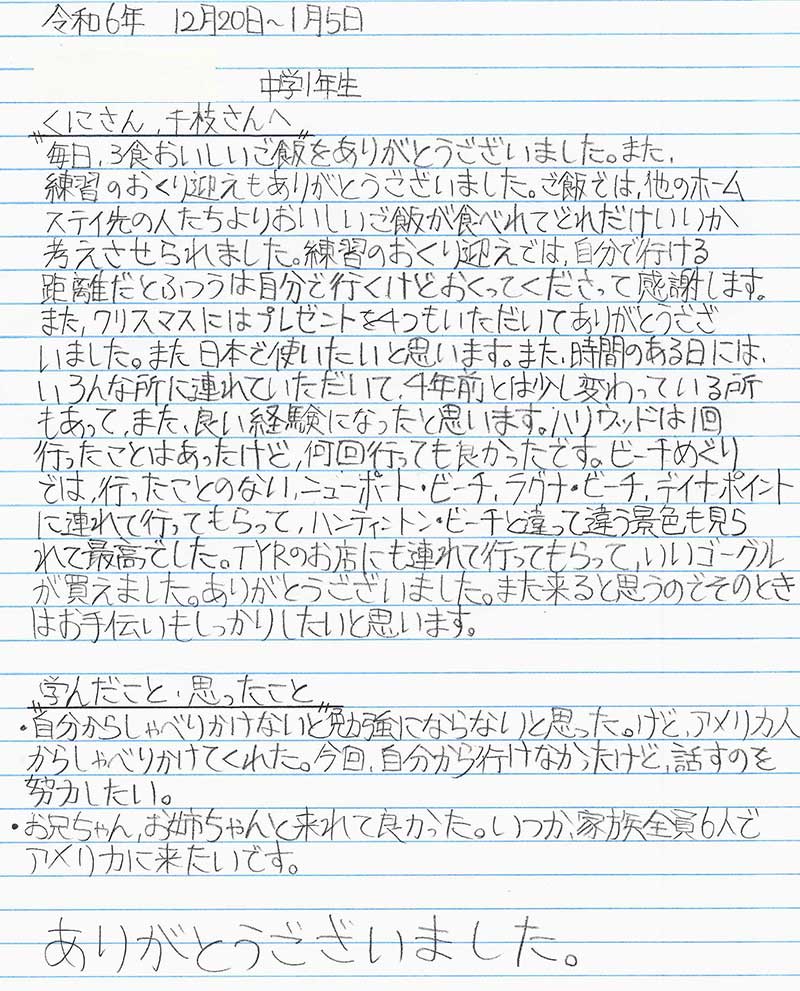 令和6年 12月20日～1月5日
中学1年生
〃くにさん,千枝さんへ〃
毎日,3食おいしいご飯をありがとうございました。また,
練習のおくり迎えもありがとうございました。ご飯では,他のホーム
ステイ先の人たちよりおいしいご飯が食べれてどれだけいいか
考えさせられました。練習のおくり迎えでは,自分で行ける
距離だとふつうは自分で行くけどおくってくださって感謝します。
また,クリスマスにはプレゼントを4つもいただいてありがとうござ
いました。また日本で使いたいと思います。また,時間のある日には,
いろんな所に連れていただいて,4年前とは少し変わっている所
もあって,また,良い経験になったと思います。ハリウッドは1回
行ったことはあったけど,何回行っても良かったです。ビーチめぐり
では,行ったことのない,ニューポート・ビーチ,ラグナ・ビーチ,デイナポイント
に連れて行ってもらって,ハンティントン・ビーチと違って違う景色も見ら
れて最高でした。TYRのお店にも連れて行ってもらって,いいゴーグル
が買えました。ありがとうございました。また来ると思うのでそのとき
はお手伝いもしっかりしたいと思います。
〃学んだこと・思ったこと〃
・自分からしゃべりかけないと勉強にならないと思った。けど,アメリカ人
からしゃべりかけてくれた。今回,自分から行けなかったけど,話すのを
努力したい。
・お兄ちゃん,お姉ちゃんと来れて良かった。いつか,家族全員6人で
アメリカに来たいです。
ありがとうございました。